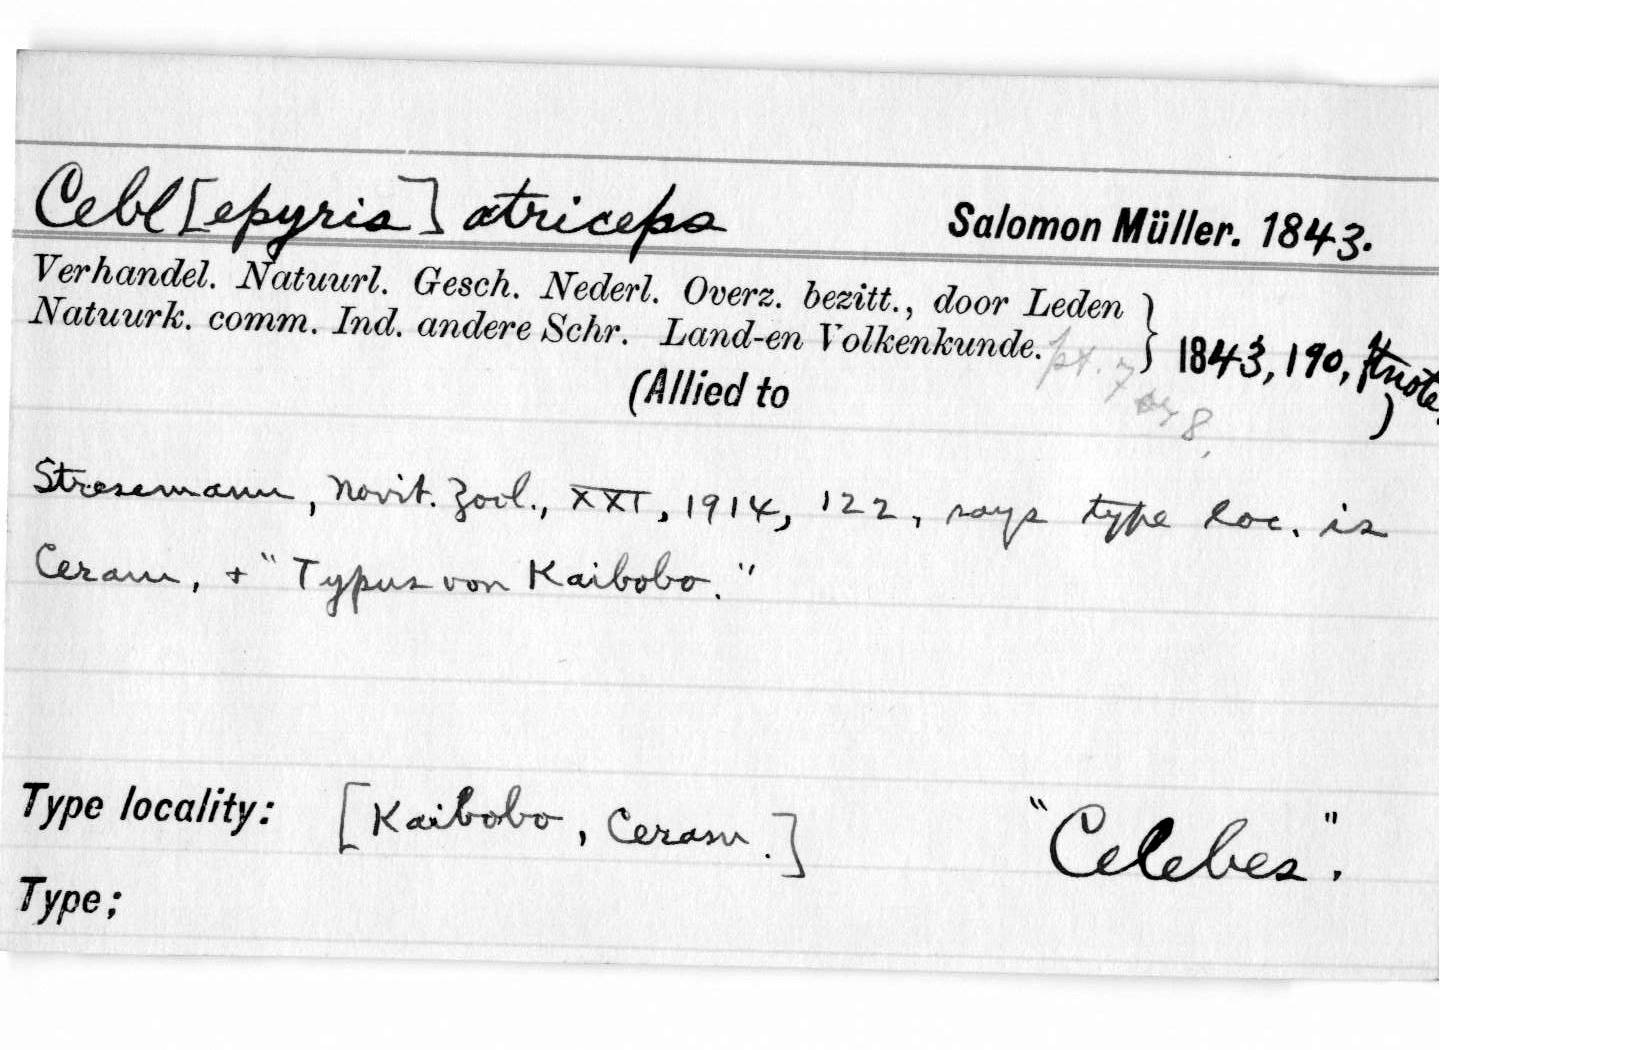 Cebl[epyris] atriceps Salomon Müller. 1843.
Verhandel. Natuurl. Gesch. Nederl. Overz. bezitt., door Leden
Natuurk. comm. Ind. andere Schr. Land-en Volkenkunde. } 1843, 190, ftnote.
pt. 7 or 8.
(Allied to )
Stresemann, Novit. Zool., XXI, 1914, 122, says type loc. is
Ceram, + "Typus von Kaibobo."
Type locality: [Kaibobo, Ceram.] "Celebes".
Type;